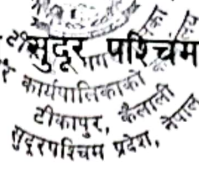 सुदूर पश्चिम
कार्यपालिकाको
टीकापुर, कैलाली
सुदूरपश्चिम प्रदेश, नेपाल